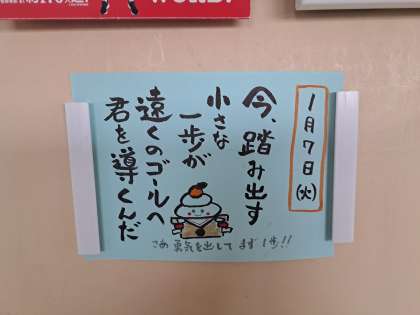 1月7日(火)
今、踏み出す
小さな
一歩が
遠くのゴールへ
君を導くんだ
さあ勇気を出してまず1歩!!